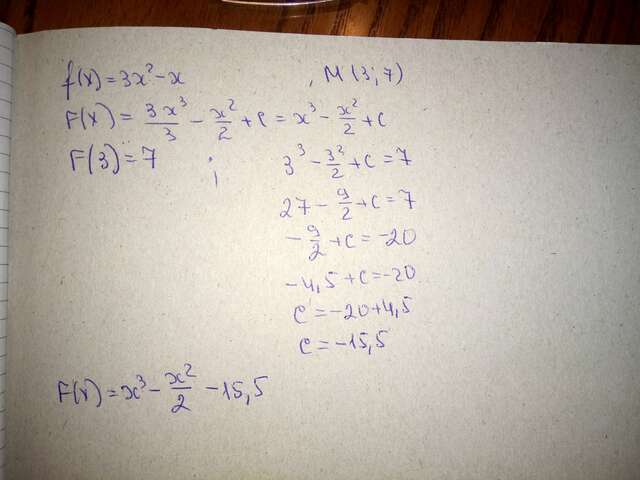 f(x) = 3x² - x , M(3; 7)
F(x) = 3x³/3 - x²/2 + C = x³ - x²/2 + C
F(3) = 7 ; 3³ - 3²/2 + C = 7
27 - 9/2 + C = 7
- 9/2 + C = -20
-4,5 + C = -20
C = -20 + 4,5
C = -15,5
F(x) = x³ - x²/2 - 15,5